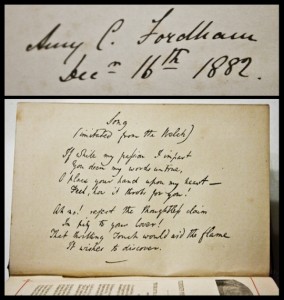 Amy C. Fordham
Decr 16th 1882.
Song
(imitated from the Welsh)
If while my passion I impart
You deem my words untrue,
O place your hand upon my heart—
Feel, how it throbs for you!
Ah no! reject the thoughtless claim
In pity to your Lover!
That thrilling Touch would aid the flame
It wishes to discover.